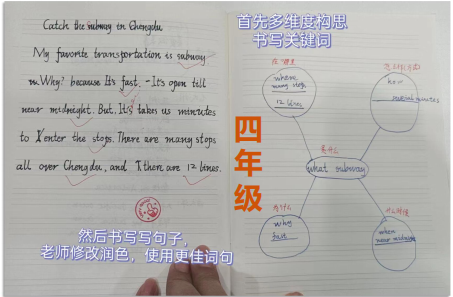 Catch the subway in Chengdu
My favorite transportation is subway
Why? because It's fast. It's open till
near midnight. But. It's takes us minutes
to enter the stops. There are many stops
all over Chengdu, and there are 12 lines.
然后书写写句子，
老师修改润色，使用更佳词句
首先多维度构思
书写关键词
四年级
where
many stops
12 lines
how
several minutes
是什么
what subway
为什么
why
fast
什么时候
when
near midnight